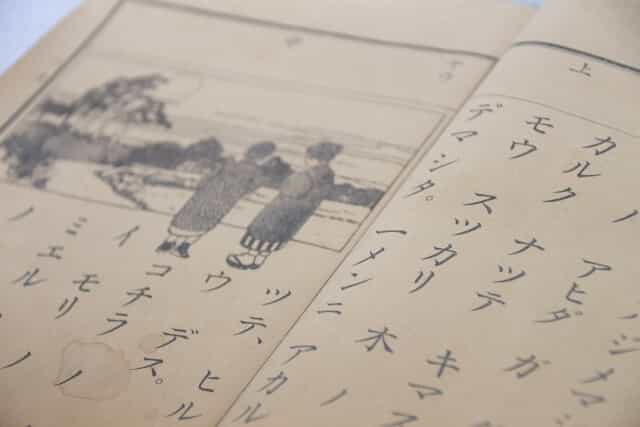 上
ジマ
ノ アヒダ ガ
カルク ナツテ キマス
モウ スツカリ 木 ノ
デマシタ。 一メンニ アカル
ツテ、 ヒル
ウ デス。
コチラ ノ
イ モリ ノ
ミエル
ノ